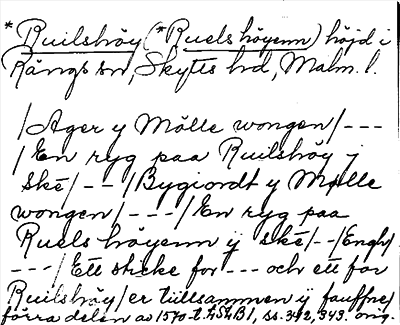 *Ruilshöy (*Ruelshöyenn) höjd i
Rängs sn, Skytts hd, Malm. l.
/Ager y Mölle wongen/---
/En ryg paa Ruilshöy j
ské/--/Bygiordt y Mølle
wongen/---/En ryg paa
Ruelshöyenn ÿ ské/--/Engh/
---/Ett skeke for --- och ett for
Ruilshöy/er tillsammen ÿ fauffne/
förra delen av 1570-t. LSLB1, ss. 342, 343. orig.